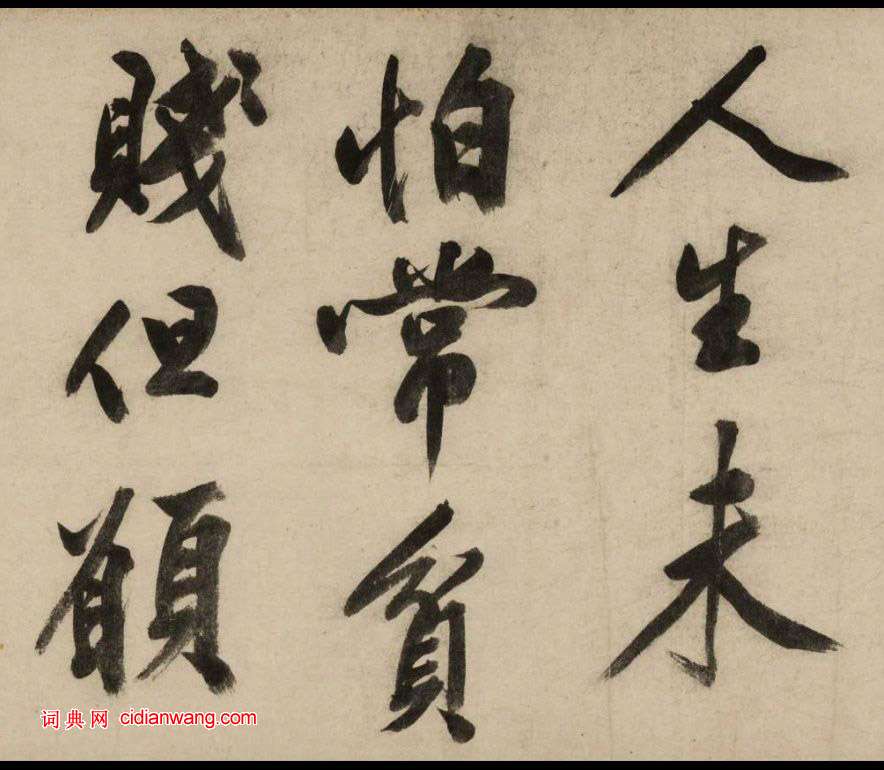 人生未
怕常貧
賤但願
词典网 cidianwang.com